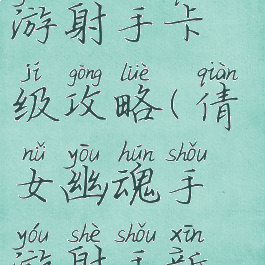 游射手卡
jí gōng lüè qiàn
级攻略(倩
nǚ yōu hún shǒu
女幽魂手
yóu shè shǒu xīn
游射手新